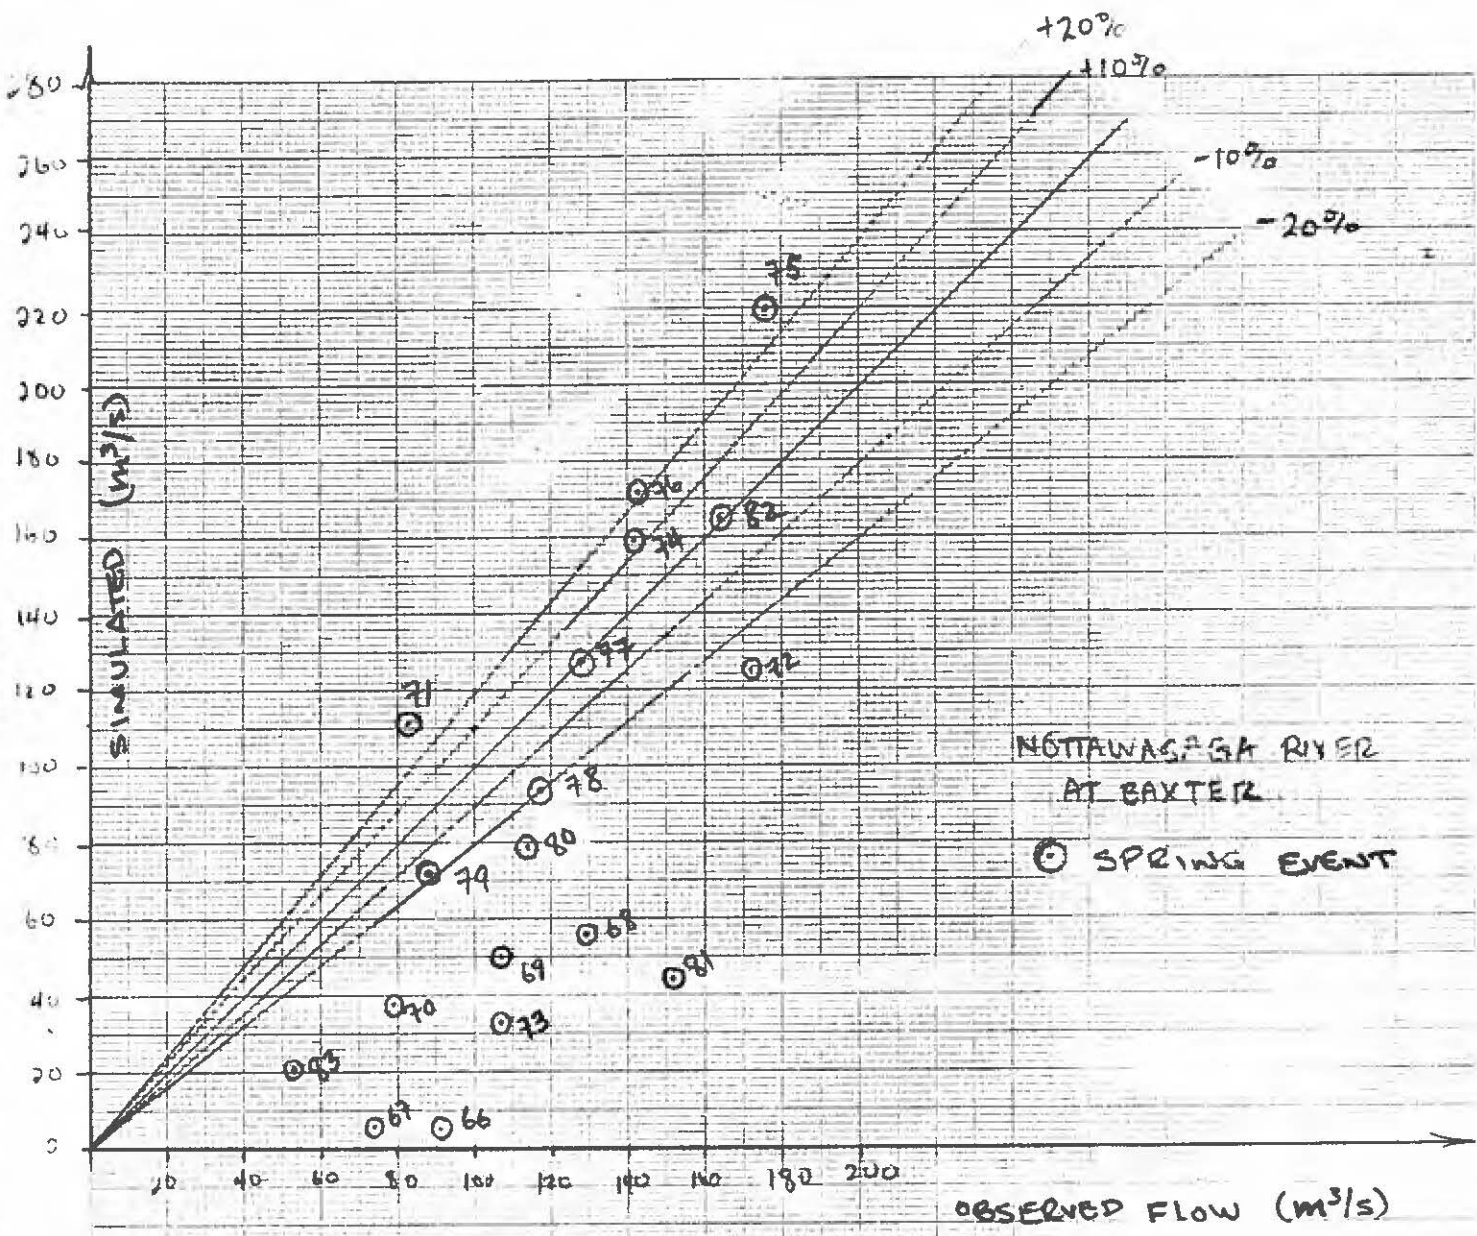 +20%
+10%
-10%
-20%
280
260
240
220
200
180
160
140
120
100
80
60
40
20
0
SIMULATED (m³/s)
75
76
74
82
77
72
71
78
80
79
68
69
81
70
73
83
67
66
NOTTAWASAGA RIVER
AT BAXTER
SPRING EVENT
20 40 60 80 100 120 140 160 180 200
OBSERVED FLOW (m³/s)